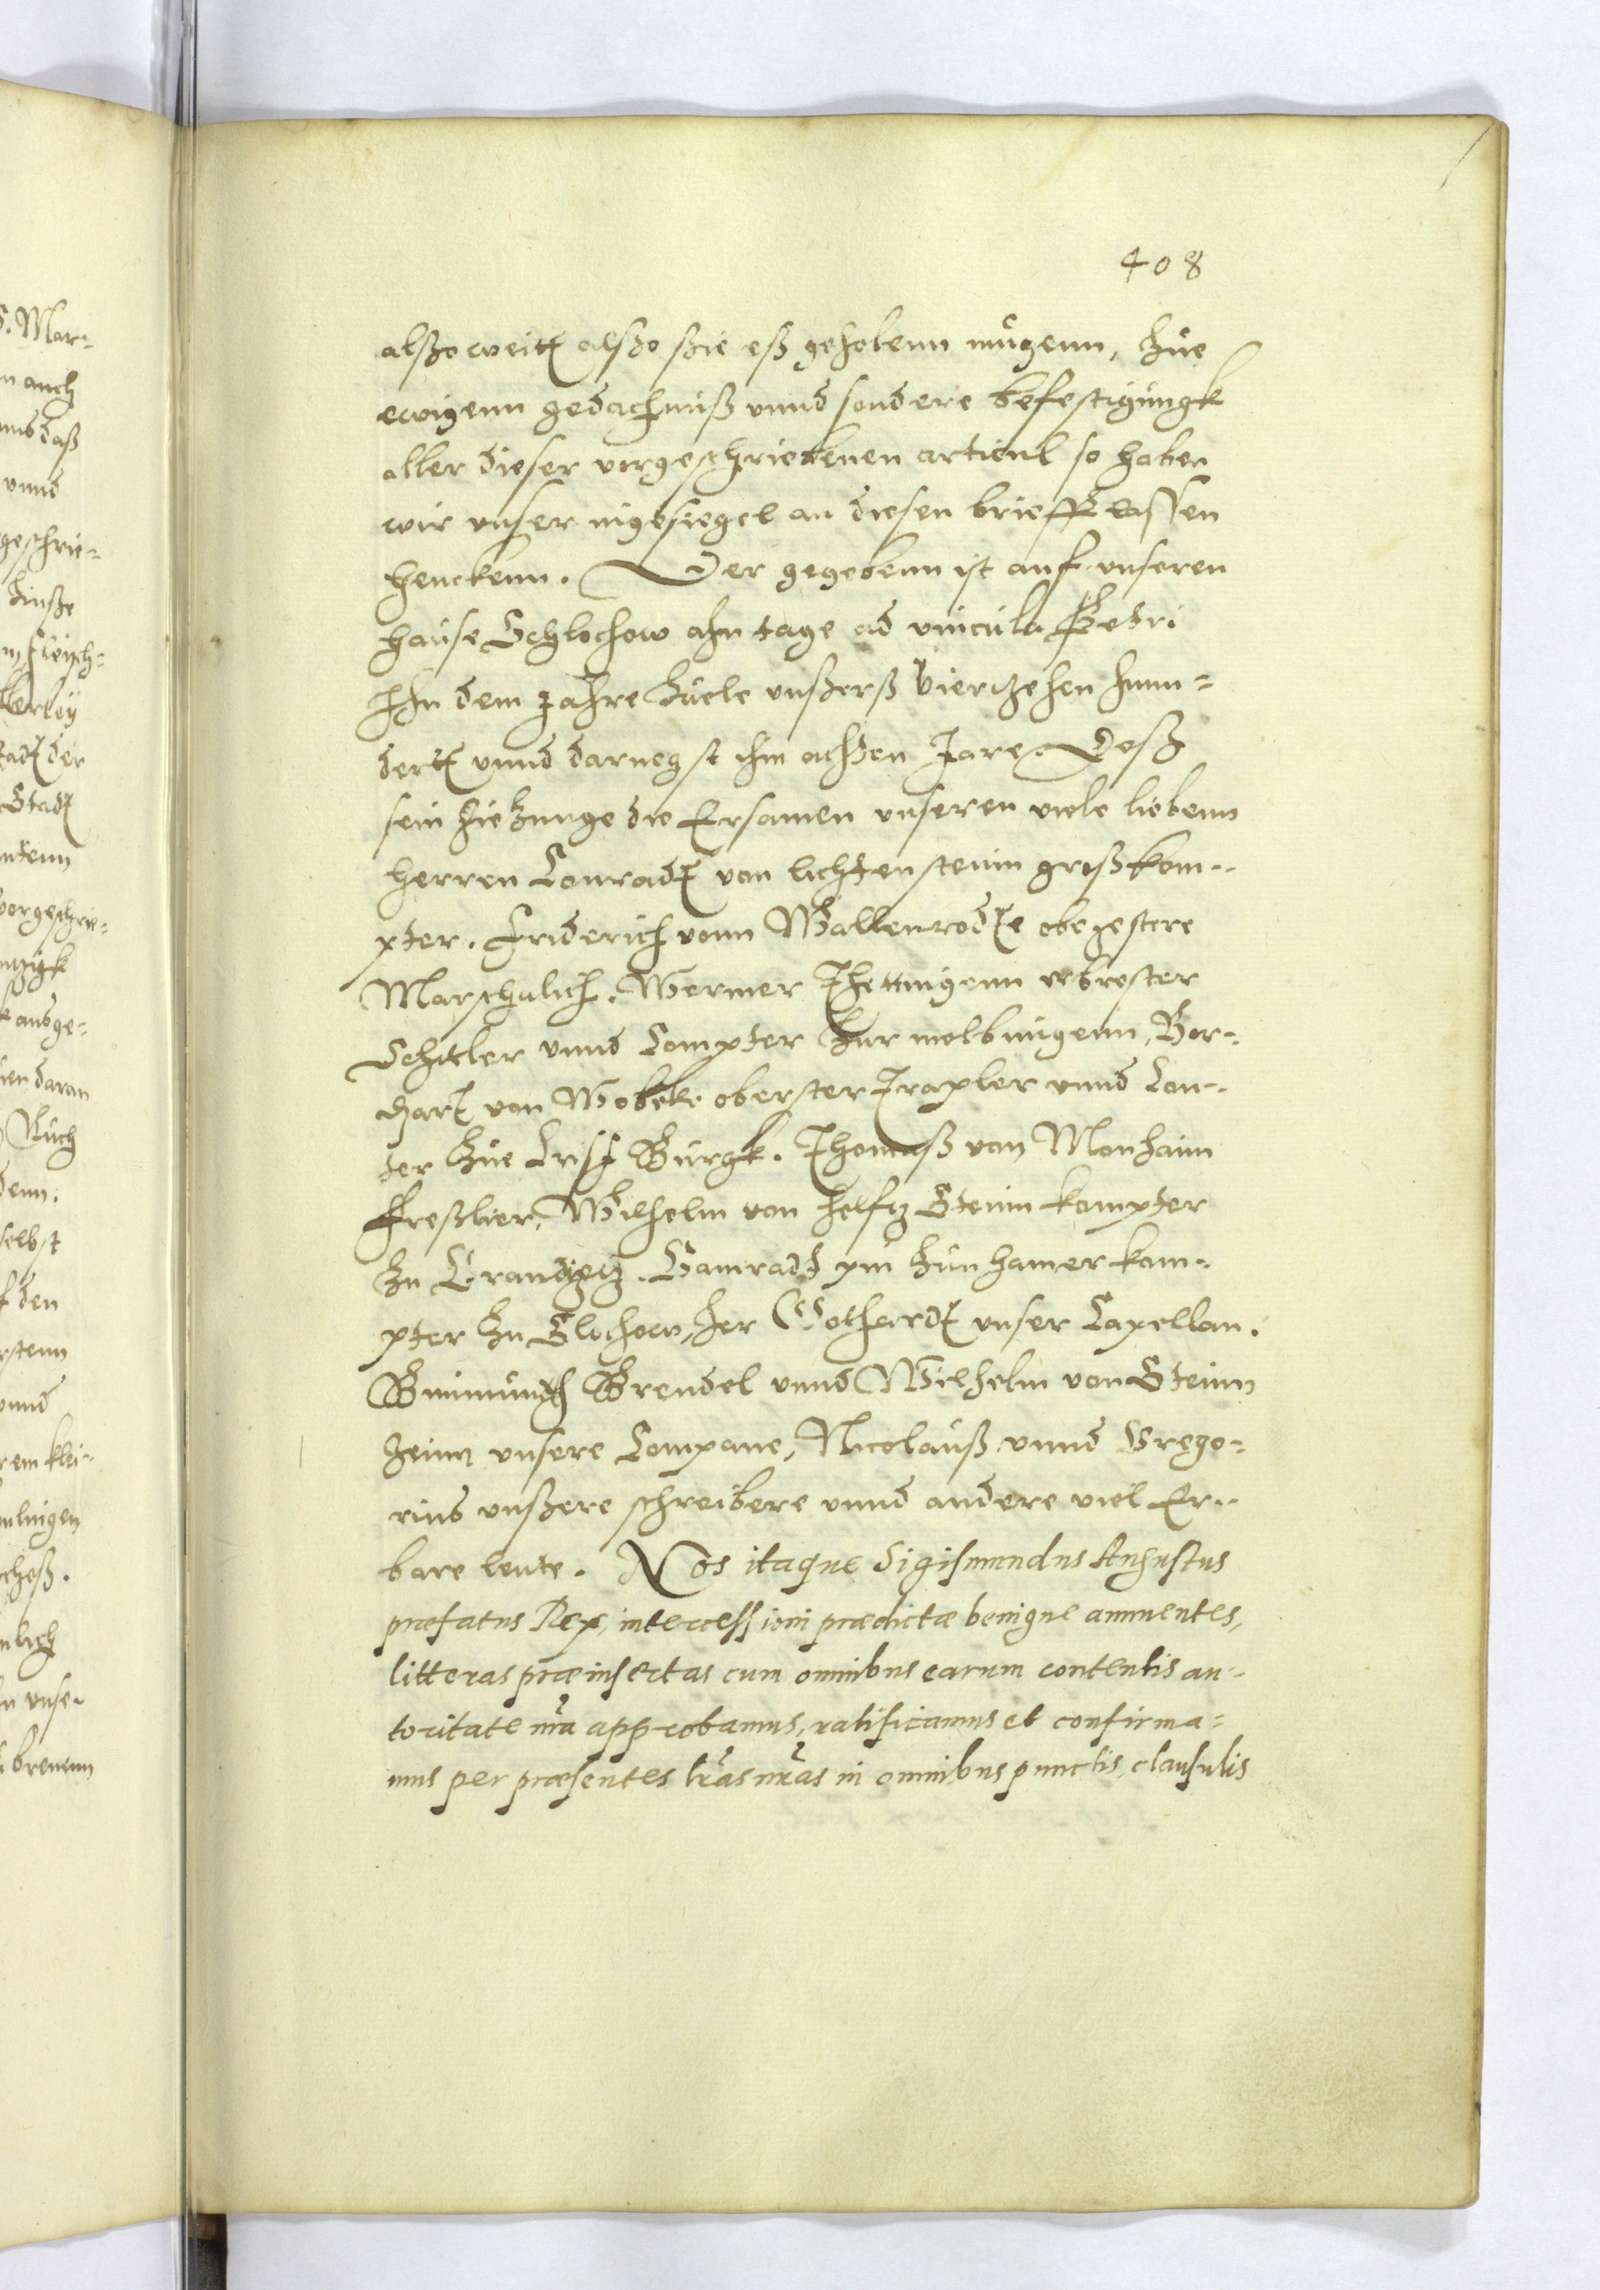 408
alßo weit alßo ßie eß gehobenn mugenn, Zue
ewigenn gedachnuß vnnd sondere befestigungk
aller dieser vorgeschriebenen articul so haben
wir vnser ingesiegel an diesen brieff lassen
henckenn. Der gegebenn ist auf vnseren
hause Schlochow ahn tage ad vincula Petri
Ihn dem Jahre Zuele vnßerß Vierzehen hun=
dert vnnd darnegst ihm achten Jare. Deß
sein Zie Zunge die Ersamen vnseren viele liebenn
herren Conradt von lichtensteinn großkom=
pter. Friderich vonn Wallenrodte obegestere
Marschalich. Werner Thettingenn vbrester
Schitler vnnd Compter Zur melbingenn, Bor=
chart von Wobeke oberster Trapler vnnd Con=
ter Zue Crist Burgk. Thomaß von Monhaim
Treßlier, Wilhelm von helfz Steinn kompter
Zu Graudentz. Gamradt pin Zun hamer kom=
pter Zu Slochow, her Gothardt vnser Capellan.
Brendel vnnd Wilhelm von Steinn
heim vnsere Compane, Nicolauß vnnd Grego=
rius vnßere schreibere vnnd andere viel Er=
bare leute. Nos itaque Sigismundus Augustus
præfatus Rex, intercessioni prædictæ benigne annuentes,
litteras præinsertas cum omnibus earum contentis au=
toritate nra approbamus, ratificamus et confirma=
mus per præsentes lras nras in omnibus punctis, clausulis
S. Mar=
n auch
vnnd
geschrie=
Zinße
Fleisch=
der
Stadt
vorgeschrie=
ausge=
daran
selbst
f den
vnnd
lich
n vnse=